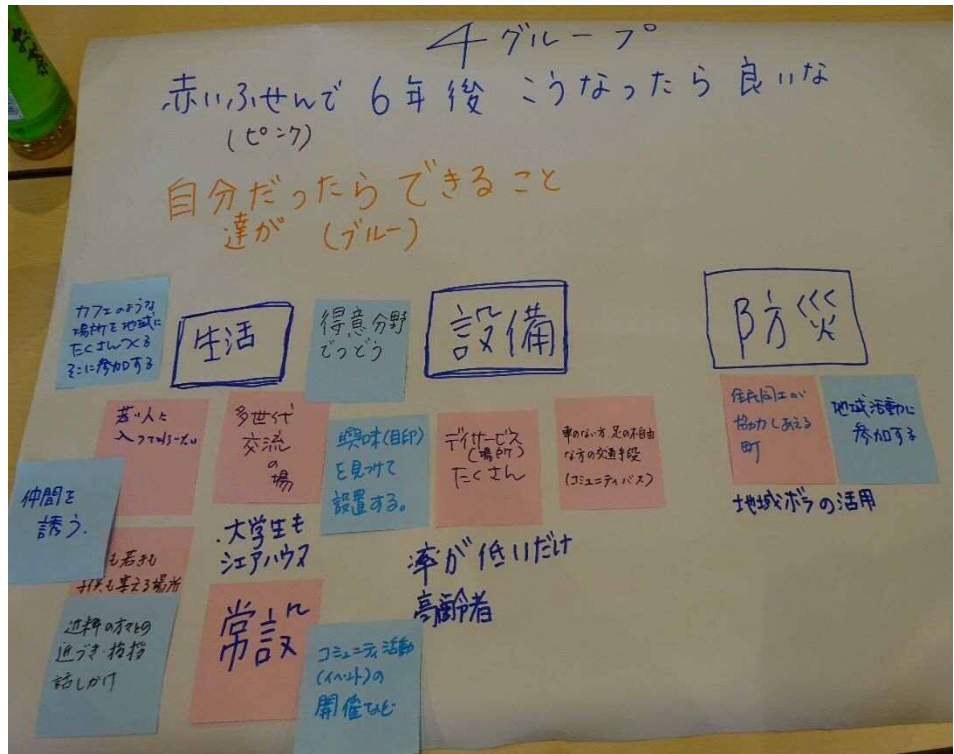 4グループ
赤いふせんで 6年後 こうなったら 良いな
(ピンク)
自分だったらできること
達が (ブルー)
カフェのような
場所を地域に
たくさんつくる
そこに参加する
生活
得意分野
でつどう
設備
防災
若い人に
入ってもらいたい
多世代
交流
の
場
興味(目印)
を見つけて
設置する。
デイサービス
(場所)
たくさん
車のない方 足の不自由
な方の交通手段
(コミュニティバス)
住民同士が
協力しあえる
町
地域活動に
参加する
地域ボラの活用
仲間を
誘う.
も若きも
子供も集える場所
.大学生も
シェアハウス
率が低いだけ
高齢者
近隣の方々との
近づき・挨拶
話しかけ
常設
コミュニティ活動
(イベント)の
開催など